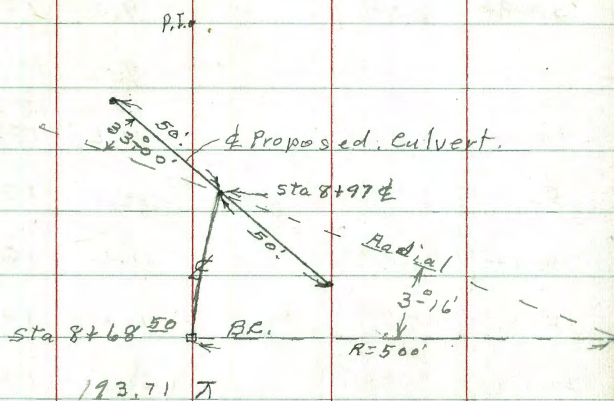 P.I.
50'
33°00'
℄ Proposed. Culvert.
Sta 8+97 ℄
50'
Radial
℄
3°-16'
Sta 8+68 50 B.C.
R=500'
193.71 ⊼